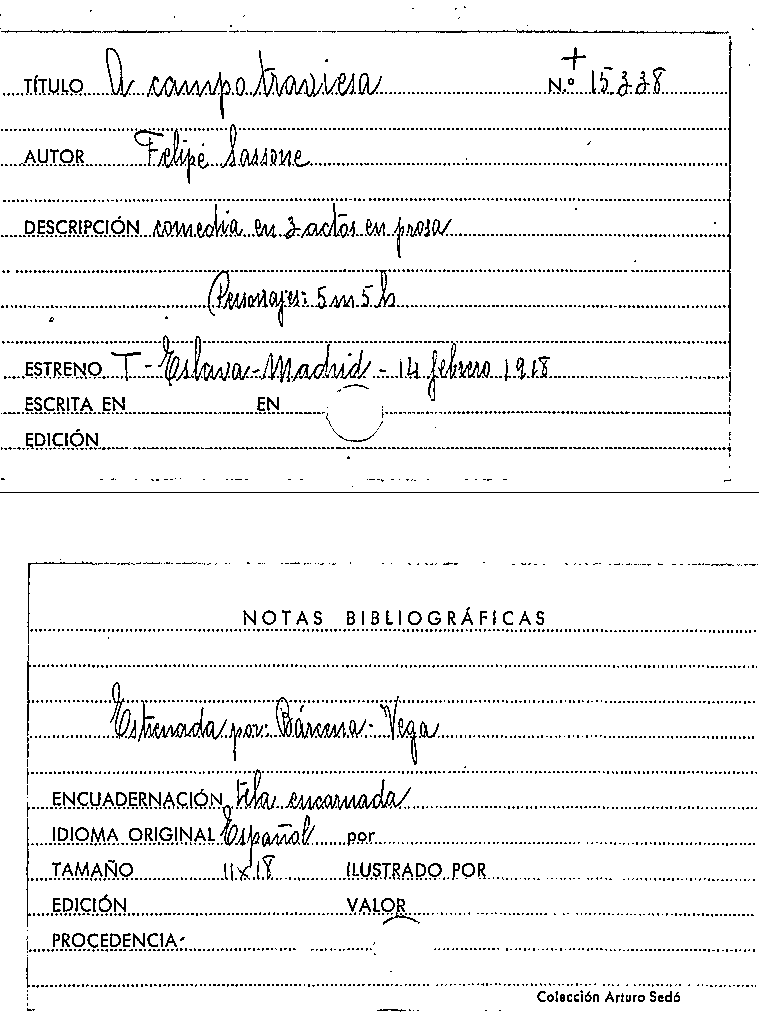 TÍTULO A campo traviesa N.º + 15338
AUTOR Felipe Sassone
DESCRIPCIÓN comedia en 3 actos en prosa
Personajes: 5 m 5 h
ESTRENO T - Eslava - Madrid - 14 febrero 1918
ESCRITA EN EN
EDICIÓN
NOTAS BIBLIOGRÁFICAS
Estrenada por: Bárcena - Vega
ENCUADERNACIÓN tela encarnada
IDIOMA ORIGINAL Español por
TAMAÑO 11x18 ILUSTRADO POR
EDICIÓN VALOR
PROCEDENCIA
Colección Arturo Sedó